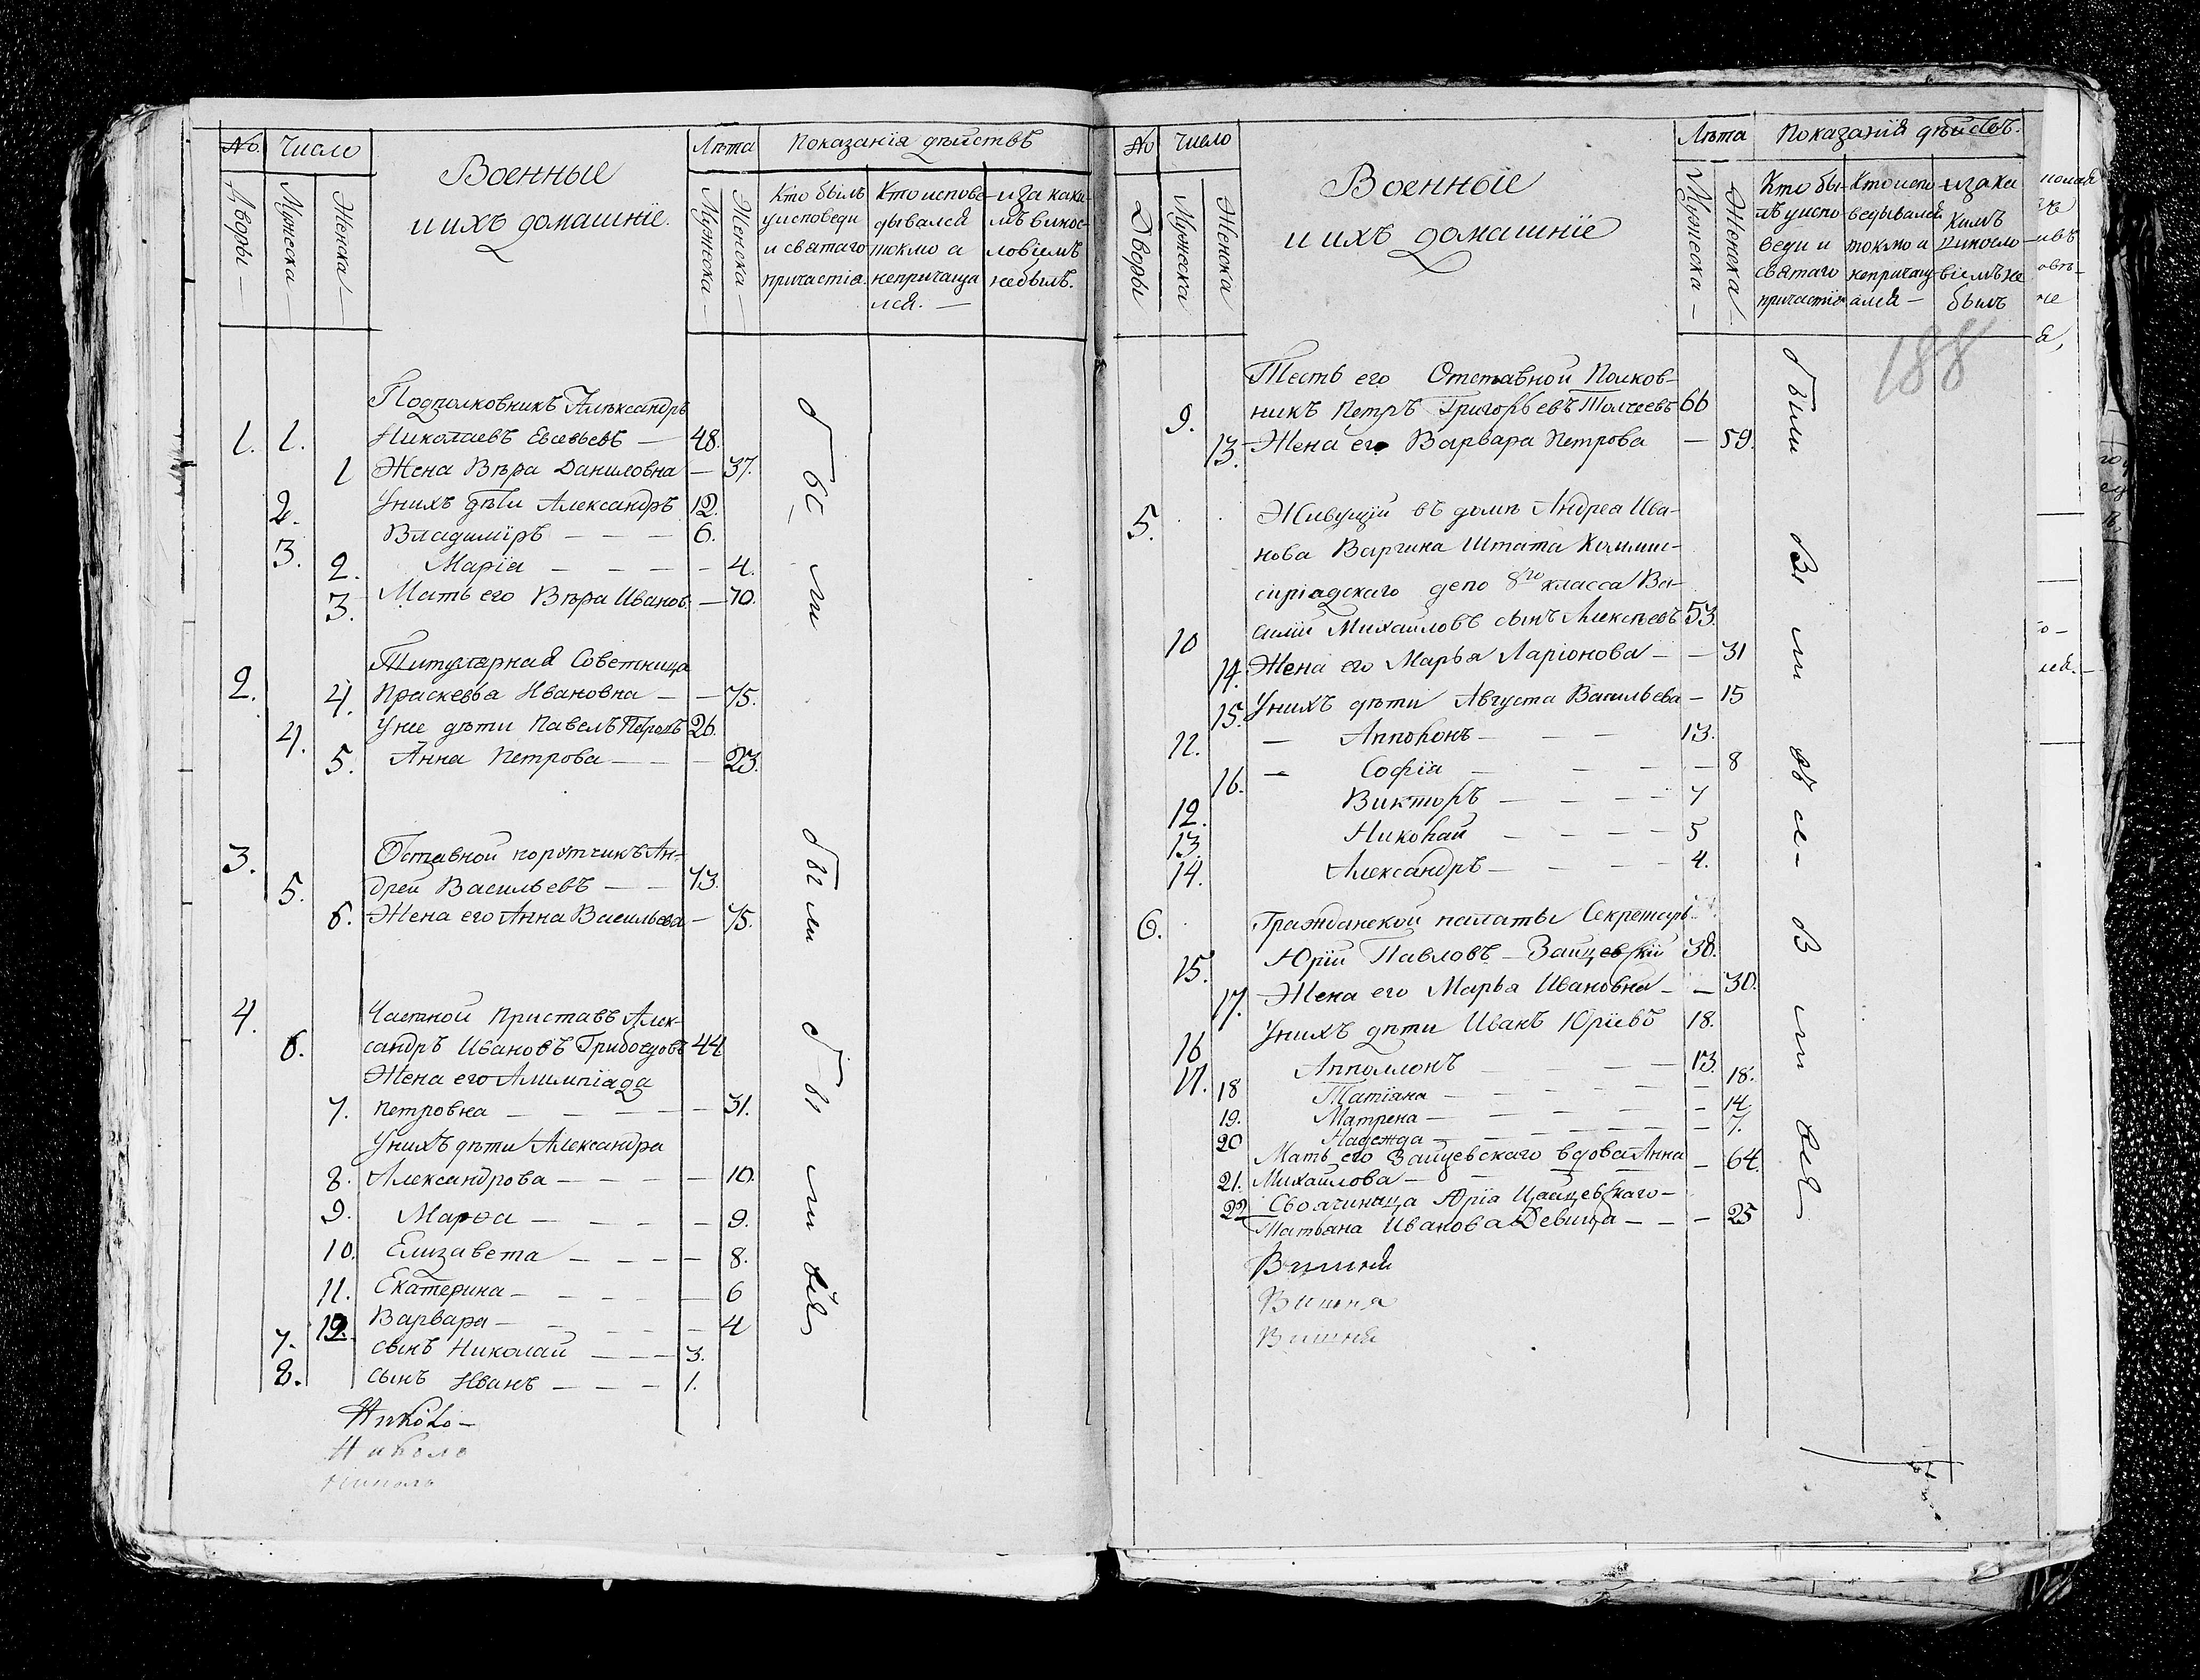 № Число Военные и ихъ домашніе. Лѣта Показанія дѣйствъ
Дворы Мужеска Женска Мужеска Женска
Кто былъ у исповеди и святаго причастія.
Кто исповедывался токмо а непричащался.
и за какимъ винословіемъ небылъ.
Подполковникъ Алѣксандръ
1. 1. Николаевъ Евсевьевъ — 48.
1 Жена Вѣра Даниловна — 37.
2. Унихъ дѣти Александръ 12.
3. Владимiръ — — — 6.
2. Марія — — — — 4.
3. Мать его Вѣра Иванов. — 70.
Титулярная Советница
2. 4. Праскевья Ивановна — — 75.
4. Унее дѣти Павелъ Петровъ 26.
5. Анна Петрова — — — 23.
3. Отставной порутчикъ Ан-
5. дрей Васильевъ — — 73.
6. Жена его Анна Васильева — 75.
4. Частной Приставъ Алек-
6. сандръ Ивановъ Грибоедовъ 44
Жена его Алимпіада
7. Петровна — — — — — 31.
Унихъ дѣти Александра
8. Александрова — — — — 10.
9. Марѳа — — — — — 9.
10. Елизавета — — — — 8.
11. Екатерина — — — — 6
12. Варвара — — — — — 4
7. сынъ Николай — — — 3.
8. сынъ Иванъ — — — 1.
были
были
были всѣ
Николо —
Николо
Николь
№ Число Военные и ихъ домашніе Лѣта Показанія дѣйствъ.
Дворы Мужеска Женска Мужеска Женска
Кто былъ у исповеди и святаго причастія
Кто исповедывался токмо а непричащался —
и за какимъ винословіемъ не былъ
188
Тесть его Отставной Полков-
9. никъ Петръ Григорьевъ Толчеевъ 66
13. Жена его Варвара Петрова — 59.
5. Живущій въ домѣ Андреа Ива-
нова Варгина Штата Коммис-
сиріадскаго депо 8го класса Ва-
10 силій Михайловъ сынъ Алексѣевъ 53.
14. Жена его Марья Ларіонова — — 31
15. Унихъ дѣти Августа Васильева — 15
11. — Апполонъ — — — 13.
16. — Софія — — — — 8
12. Викторъ — — — — 7
13. Николай — — — — 5
14. Александръ — — — — 4.
6. Гражданской палаты Секретарь
15. Юрій Павловъ — Зайцевскій 38.
17. Жена его Марья Ивановна — — 30.
16 Унихъ дѣти Иванъ Юріевъ 18.
17. Апполлонъ — — — 13.
18 Татіана — — — — — 18.
19. Матрена — — — — — 14.
20 Надежда — — — — — 7.
Мать его Зайцевскаго вдова Анна — 64.
21. Михайлова — — —
22 Своячиница Юрія Зайцевскаго —
Татьяна Иванова Девица — — — 25
были
Вишня
Вишня
Вишня